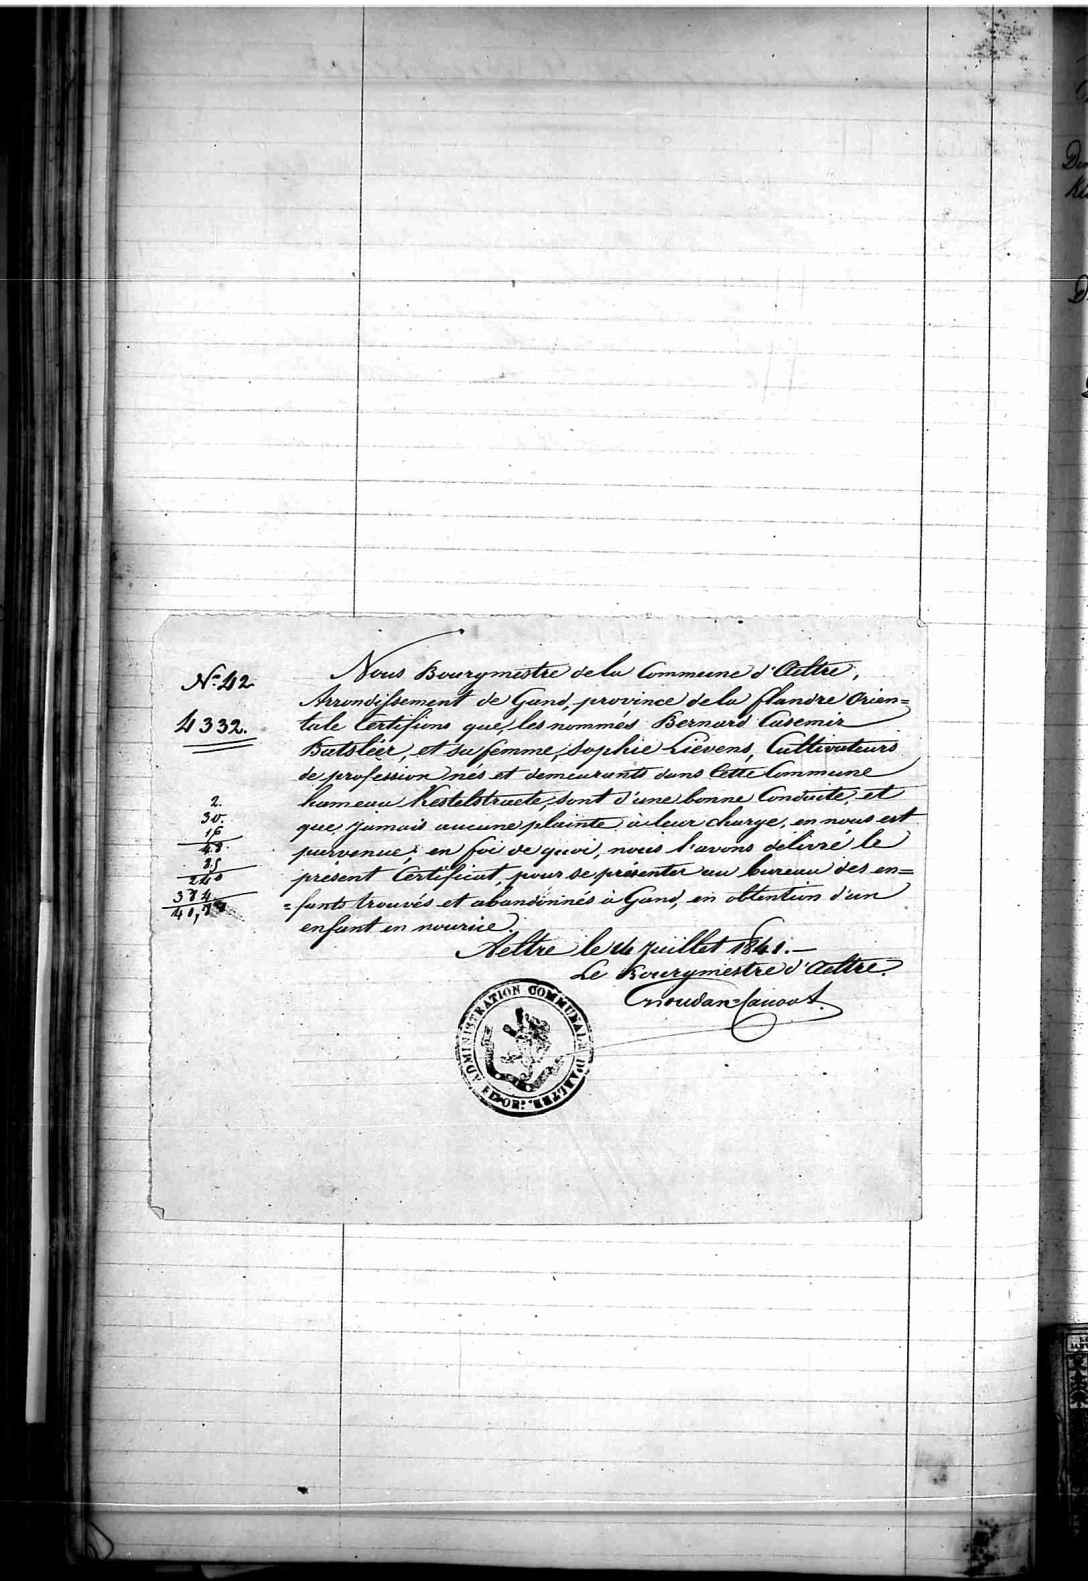 Nº 42
4332.
2.
30.
16
48.
25
240
384
Nous Bourgmestre de la Commune d'Aeltre,
Arrondissement de Gand, province de la flandre Orien=
tale Certifions que, les nommés Bernard Casemir
Batsleér, et sa femme, Sophie Lievens, Cultivateurs
de profession nés et demeurants dans Cette Commune
hameau Kestelstraete, sont d'une bonne Conduite, et
que jamais aucune plainte à leur charge, en nous est
parvenue; en foi de quoi, nous l'avons délivré le
présent Certificat, pour se présenter au bureau des en=
=fants trouvés et abandonnés à Gand, en obtention d'un
enfant en nourice.
Aeltre le 14 Juillet 1841.
Le Bourgmestre d'Aeltre
ADMINISTRATION COMMUNALE D'AELTRE